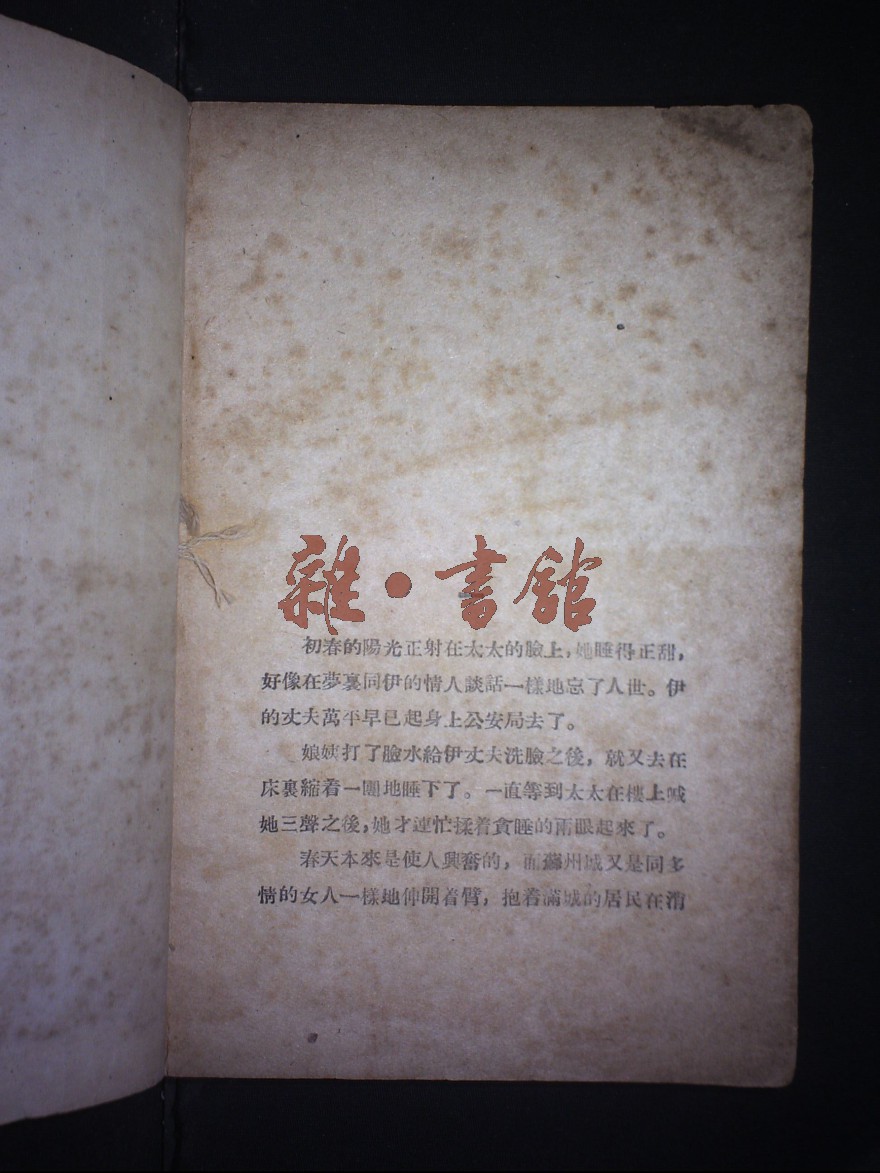 雜·書館
初春的陽光正射在太太的臉上，她睡得正甜，
好像在夢裏同伊的情人談話一樣地忘了人世。伊
的丈夫萬平早已起身上公安局去了。
娘姨打了臉水給伊丈夫洗臉之後，就又去在
床裏縮着一團地睡下了。一直等到太太在樓上喊
她三聲之後，她才連忙揉着貪睡的兩眼起來了。
春天本來是使人興奮的，而蘇州城又是同多
情的女人一樣地伸開着臂，抱着滿城的居民在消